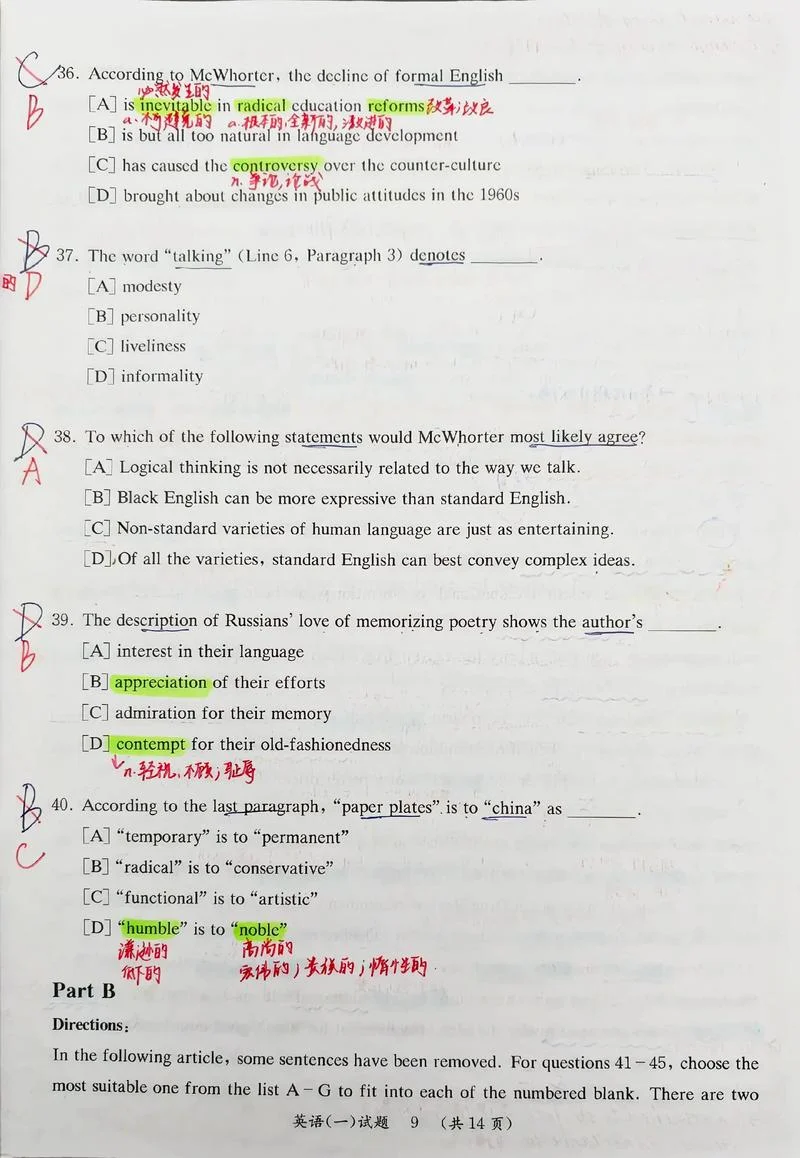 C 36. According to McWhorter, the decline of formal English ________.
必然发生的
B [A] is inevitable in radical education reforms 改革;改良
a.不可避免的 a.根本的,全新的,激进的
[B] is but all too natural in language development
[C] has caused the controversy over the counter-culture
n.争论,论战
[D] brought about changes in public attitudes in the 1960s
B 37. The word “talking” (Line 6, Paragraph 3) denotes ________.
的 D [A] modesty
[B] personality
[C] liveliness
[D] informality
D 38. To which of the following statements would McWhorter most likely agree?
A [A] Logical thinking is not necessarily related to the way we talk.
[B] Black English can be more expressive than standard English.
[C] Non-standard varieties of human language are just as entertaining.
[D] Of all the varieties, standard English can best convey complex ideas.
D 39. The description of Russians’ love of memorizing poetry shows the author’s ________.
B [A] interest in their language
[B] appreciation of their efforts
[C] admiration for their memory
[D] contempt for their old-fashionedness
n.轻视,不顾;耻辱
B 40. According to the last paragraph, “paper plates” is to “china” as ________.
C [A] “temporary” is to “permanent”
[B] “radical” is to “conservative”
[C] “functional” is to “artistic”
[D] “humble” is to “noble”
谦逊的 高尚的
低下的 宏伟的;贵族的;惰性的
Part B
Directions:
In the following article, some sentences have been removed. For questions 41-45, choose the
most suitable one from the list A-G to fit into each of the numbered blank. There are two
英语(一)试题 9 (共14页)